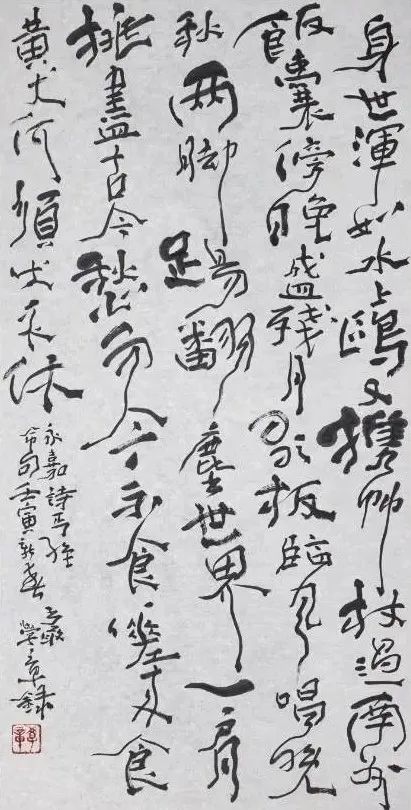 身世渾如水上鷗又攜竹杖過南州
飯囊傍晚盛殘月歌板臨風唱晚
秋兩腳踢翻塵世界一肩
挑盡古今愁而今不食嗟來食
黃犬何須吠不休
永嘉詩丐絕
命句壬寅新春
嚴學章錄